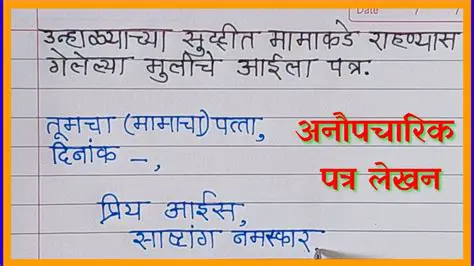 Date / /
उन्हाळ्याच्या सुट्टीत मामाकडे राहण्यास
गेलेल्या मुलीचे आईला पत्र.
तूमचा (मामाचा) पत्ता,
दिनांक -,
अनौपचारिक
पत्र लेखन
प्रिय आईस,
साष्टांग नमस्कार